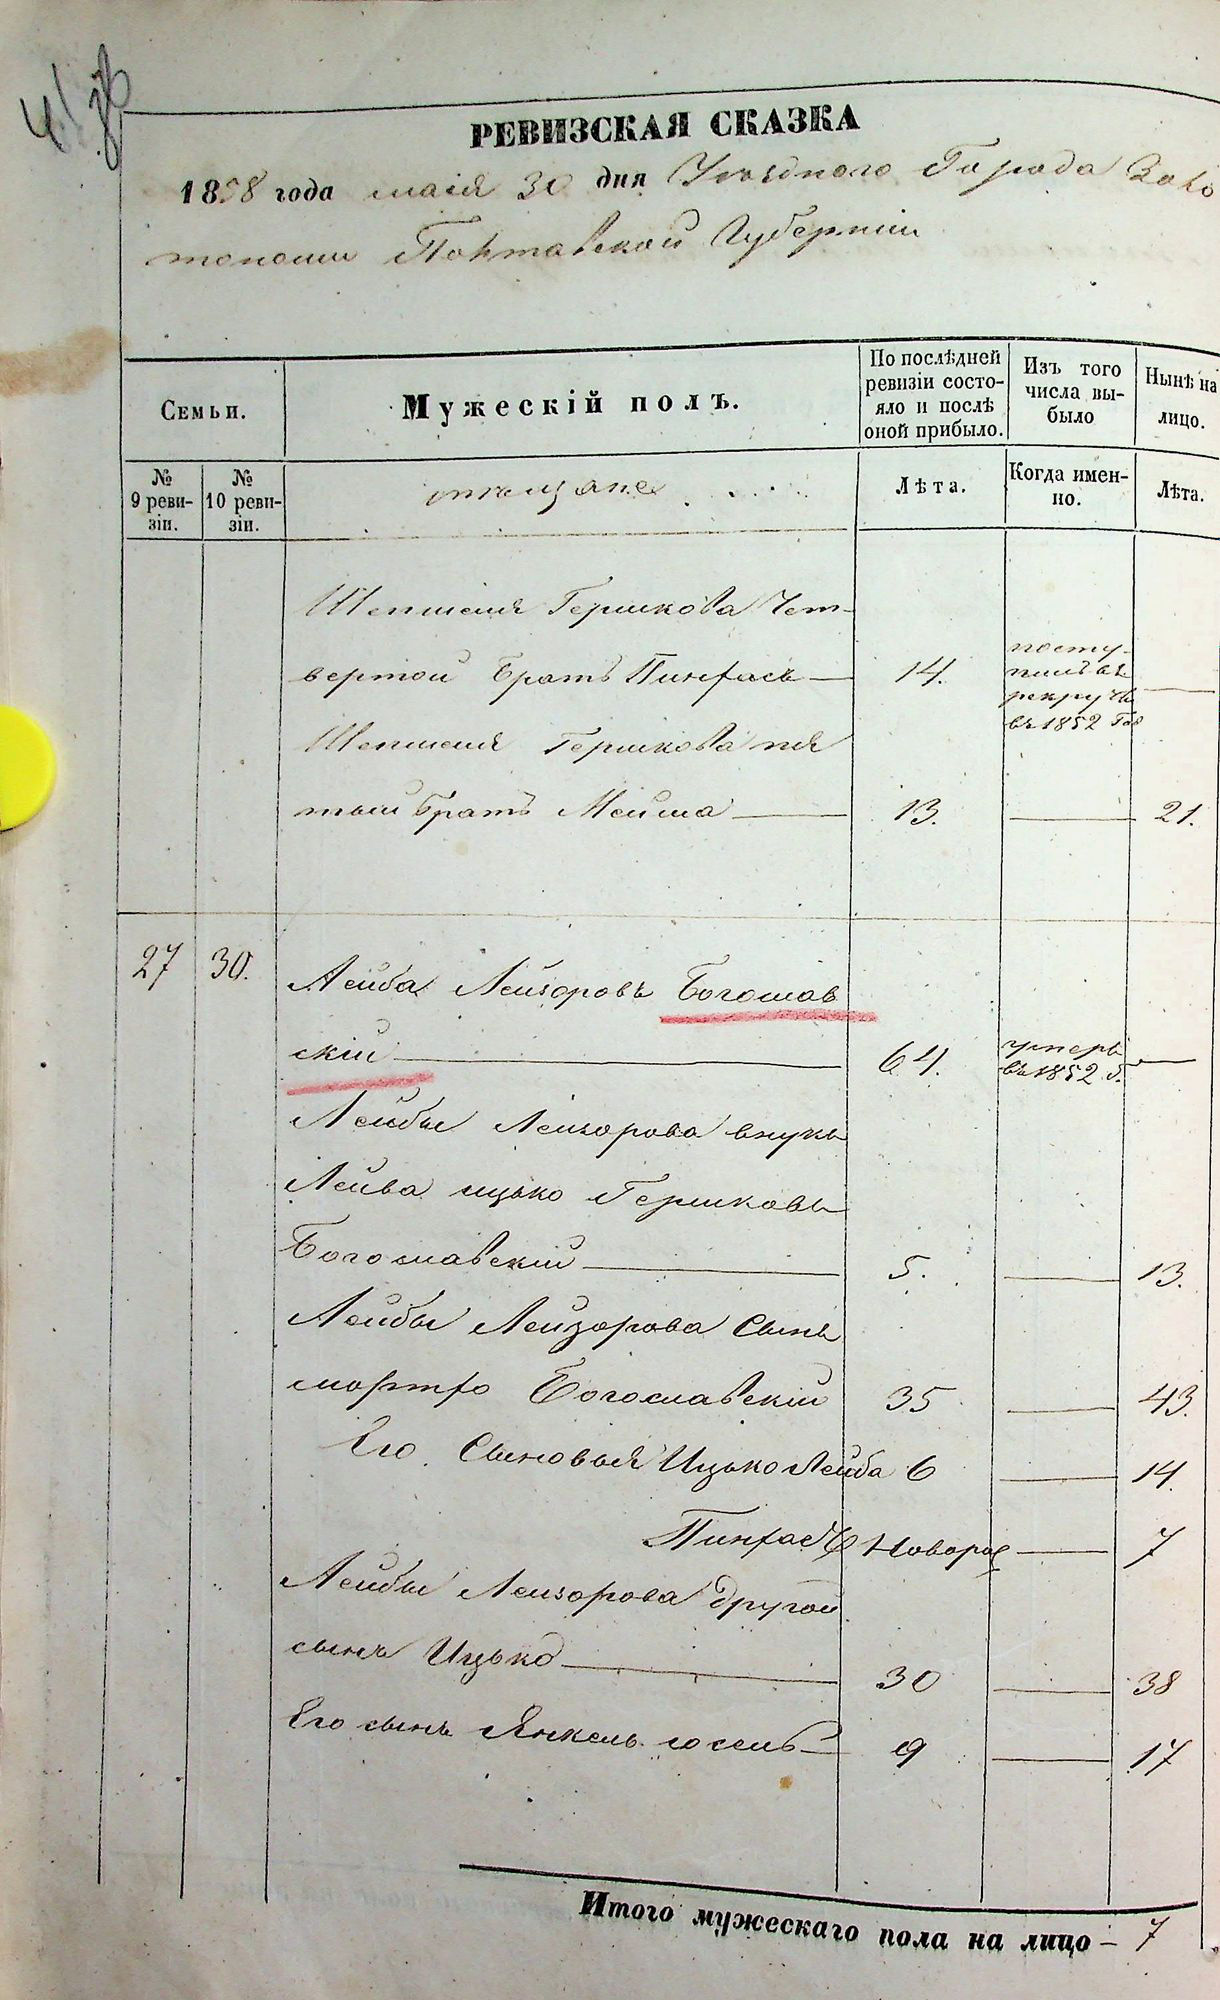 РЕВИЗСКАЯ СКАЗКА
1858 года маія 30 дня Уезднаго Города Золо
тоноши Полтавской Губерніи
Семьи.
Мужескій полъ.
По послѣдней ревизіи состо-
яло и послѣ оной прибыло.
Изъ того числа вы-
было
Нынѣ на лицо.
№ 9 реви-
зіи.
№ 10 реви-
зіи.
мѣщане
Лѣта.
Когда имен-
но.
Лѣта.
Шепшеля Гершкова Чет-
вертой братъ Пинхасъ — 14. посту-
пилъ въ
рекруты
въ 1852 Год —
Шепшеля Гершкова пя
тый братъ — 13. — 21.
27 30. Лейба Лейзоровъ Богослав
скій — 64. умеръ
въ 1852 г. —
Лейбы Лейзорова внукъ
Лейба ицько Гершковъ
Богославскій — 5. — 13.
Лейбы Лейзорова Сынъ
Богославскій 35 — 43.
Его Сыновья Ицько Лейба 6 — 14.
Пинхасъ Новорож — 7
Лейбы Лейзорова другой
сынъ Ицько — 30 — 38
Его сынъ Янкель иосель — 9 — 17
Итого мужескаго пола на лицо — 7